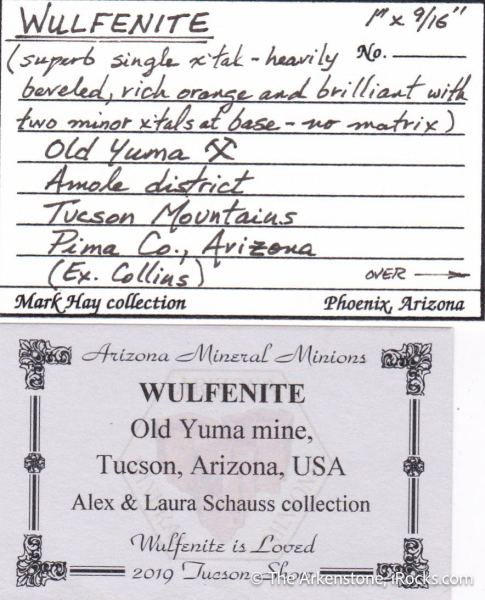 WULFENITE 1" x 9/16"
(superb single x'tal - heavily No.
beveled, rich orange and brilliant with
two minor xtals at base - no matrix)
Old Yuma ⚒
Amole district
Tucson Mountains
Pima Co., Arizona
(Ex. Collins) OVER →
Mark Hay collection Phoenix, Arizona
Arizona Mineral Minions
WULFENITE
Old Yuma mine,
Tucson, Arizona, USA
Alex & Laura Schauss collection
Wulfenite is Loved
2019 Tucson Show
© The Arkenstone, iRocks.com